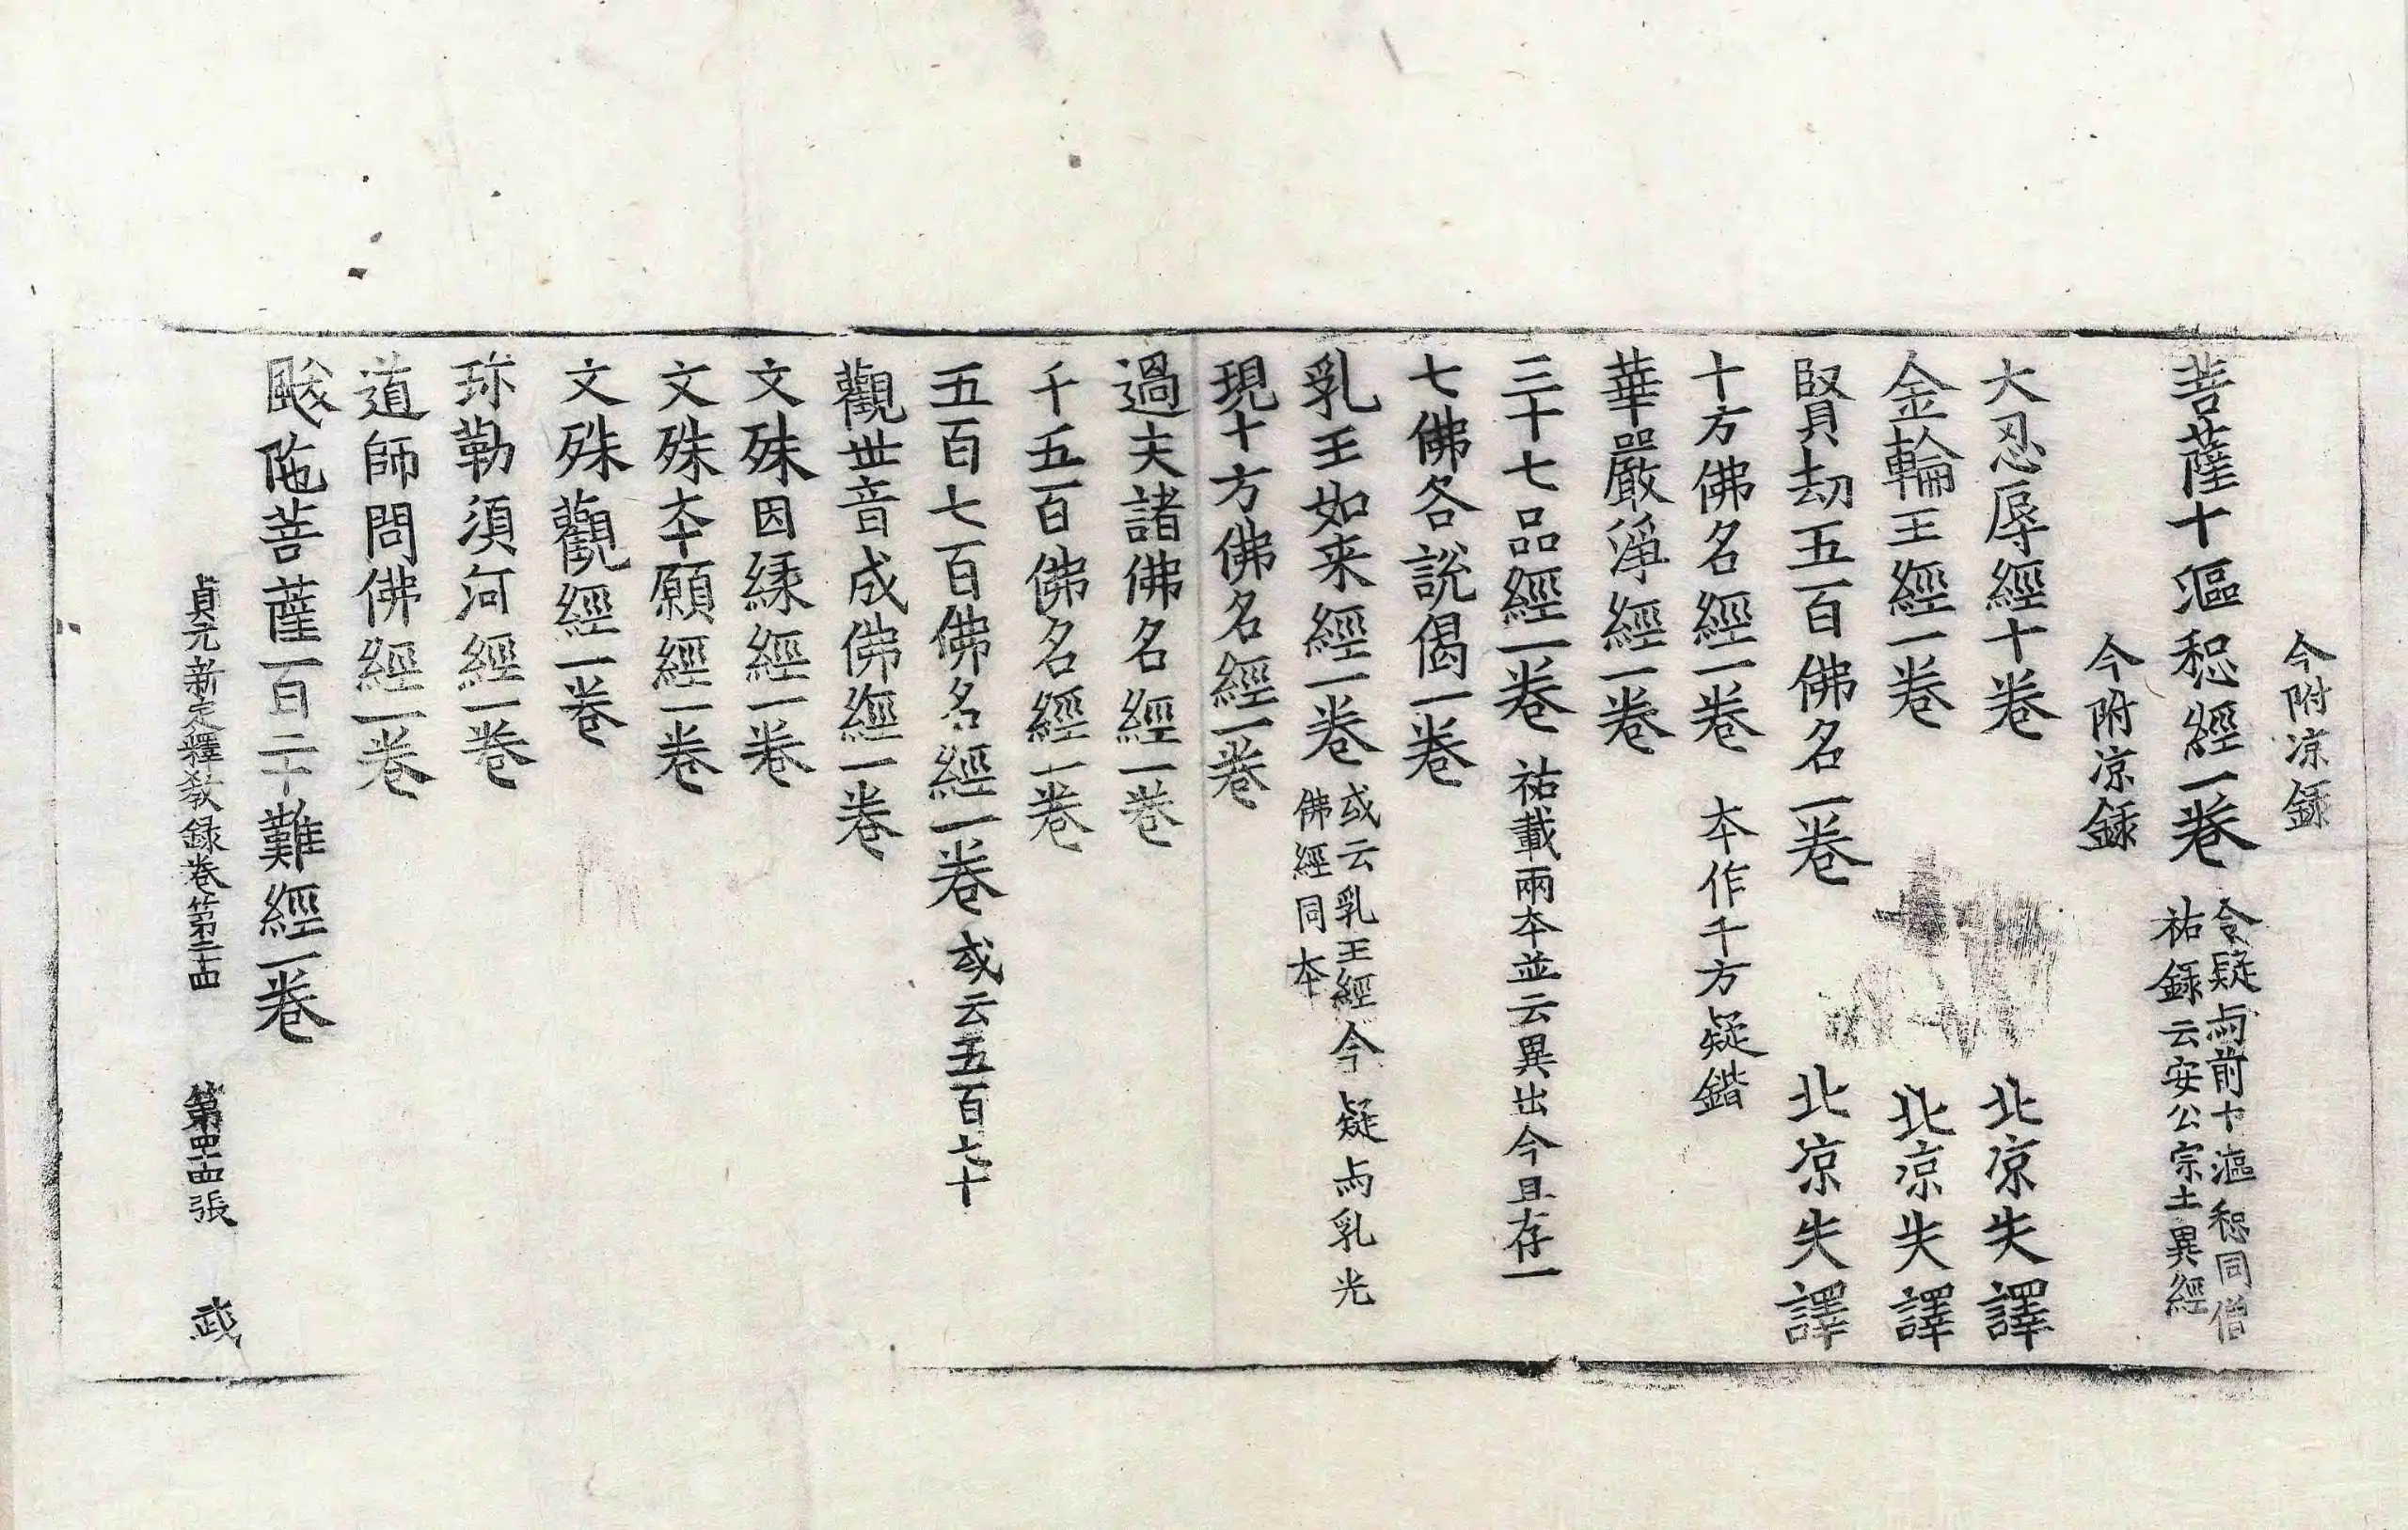 今附凉録
菩薩十漚惒經一卷 今疑与前十漚惒同僧
祐録云安公宗土異經
今附凉録
大忍辱經十卷 北凉失譯
金輪王經一卷 北凉失譯
賢劫五百佛名一卷 北凉失譯
十方佛名經一卷 夲作千方疑錯
華嚴淨經一卷
三十七品經一卷 祐載兩夲並云異出今且存一
七佛各說偈一卷
乳王如来經一卷 或云乳王經今疑与乳光
佛經同夲
現十方佛名經一卷
過去諸佛名經一卷
千五百佛名經一卷
五百七百佛名經一卷 或云五百七十
觀世音成佛經一卷
文殊因緣經一卷
文殊夲願經一卷
文殊觀經一卷
弥勒須河經一卷
道師問佛經一卷
颰陁菩薩百二十難經一卷
貞元新定釋教録卷第二十四 第四十四張 武